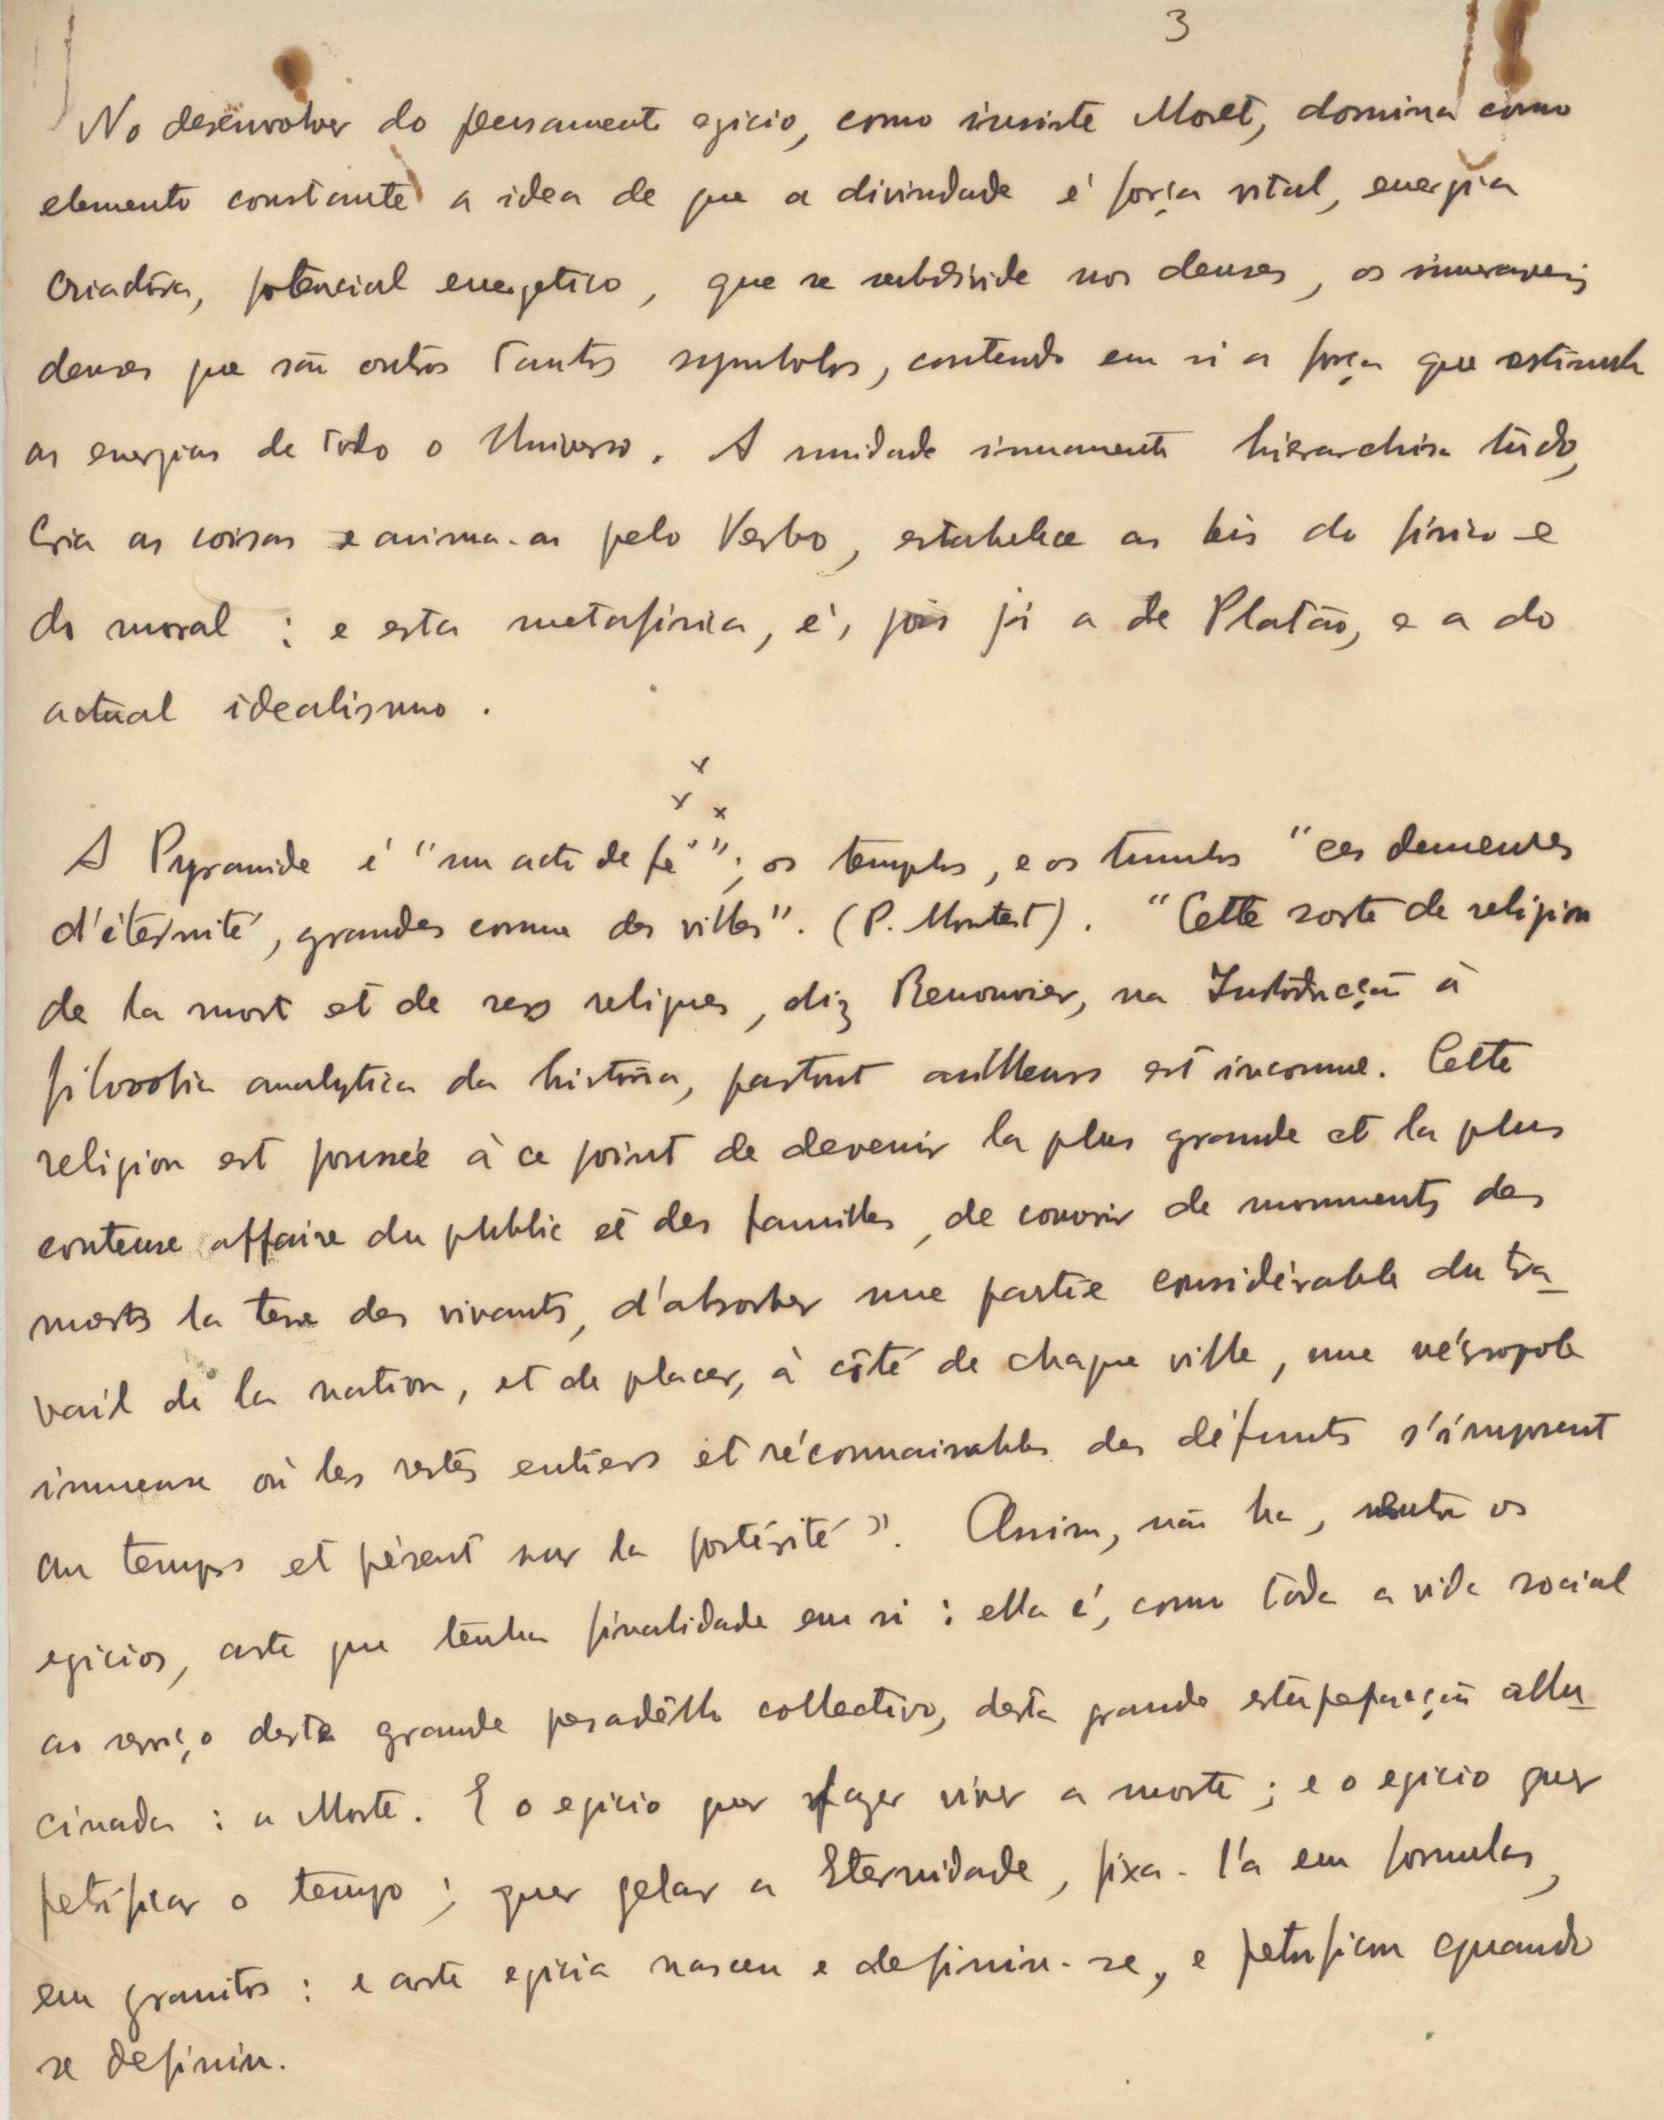 3
No desenvolver do pensamento egicio, como insiste Moret, domina como
elemento constante a idea de que a divindade é força vital, energia
criadôra, potencial energetico, que se subdivide nos deuses, os inumeraveis
deuses que são outros tantos symbolos, contendo em si a força que estimula
as energias de todo o Universo. A unidade immanente hierarchisa tudo,
Cria as coisas e anima-as pelo Verbo, estabelece as leis do fisico e
do moral : e esta metafisica, é, pois já a de Platão, e a do
actual idealismo.
x
x x
A Pyramide é "um acto de fé"; os templos, e os tumulos "ces demeures
d'éternité, grandes comme des villes". (P. Montet). "Cette sorte de religion
de la mort et de ses reliques, diz Renouvier, na Introdução à
filosofia analytica da história, partout ailleurs est inconnue. Cette
religion est poussée à ce point de devenir la plus grande et la plus
conteuse affaire du public et des familles, de couvrir de monuments des
morts la terre des vivants, d'absorber une partie considérable du tra-
vail de la nation, et de placer, à côté de chaque ville, une nécropole
immense où les restes entiers et réconnaissables des défunts s'imposent
au temps et pèsent sur la postérité". Assim, não ha, entre os
egicios, arte que tenha finalidade em si : ella é, como toda a vida social
ao serviço deste grande pesadêllo collectivo, desta grande estupefacção allu-
cinada : a Morte. E o egicio quer fazer viver a morte ; e o egicio quer
petrificar o tempo ; quer gelar a Eternidade, fixa-l'a em formulas,
em granitos : e arte egicia nasceu e definiu-se, e petrificou quando
se definiu.